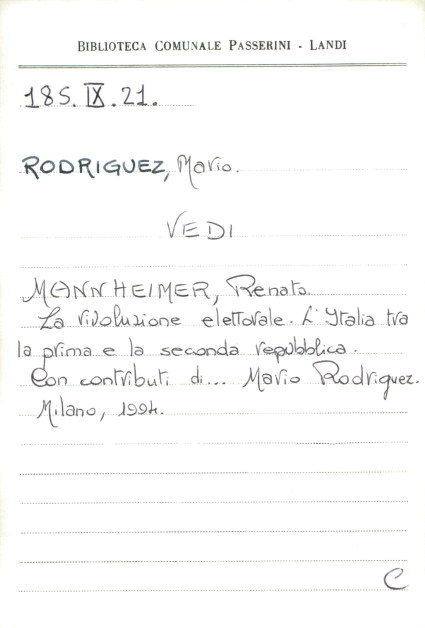 BIBLIOTECA COMUNALE PASSERINI - LANDI
185. IX. 21.
RODRIGUEZ, Mario.
VEDI
MANNHEIMER, Renato.
La rivoluzione elettorale. L'Italia tra
la prima e la seconda repubblica.
Con contributi di... Mario Rodriguez.
Milano, 1994.
C